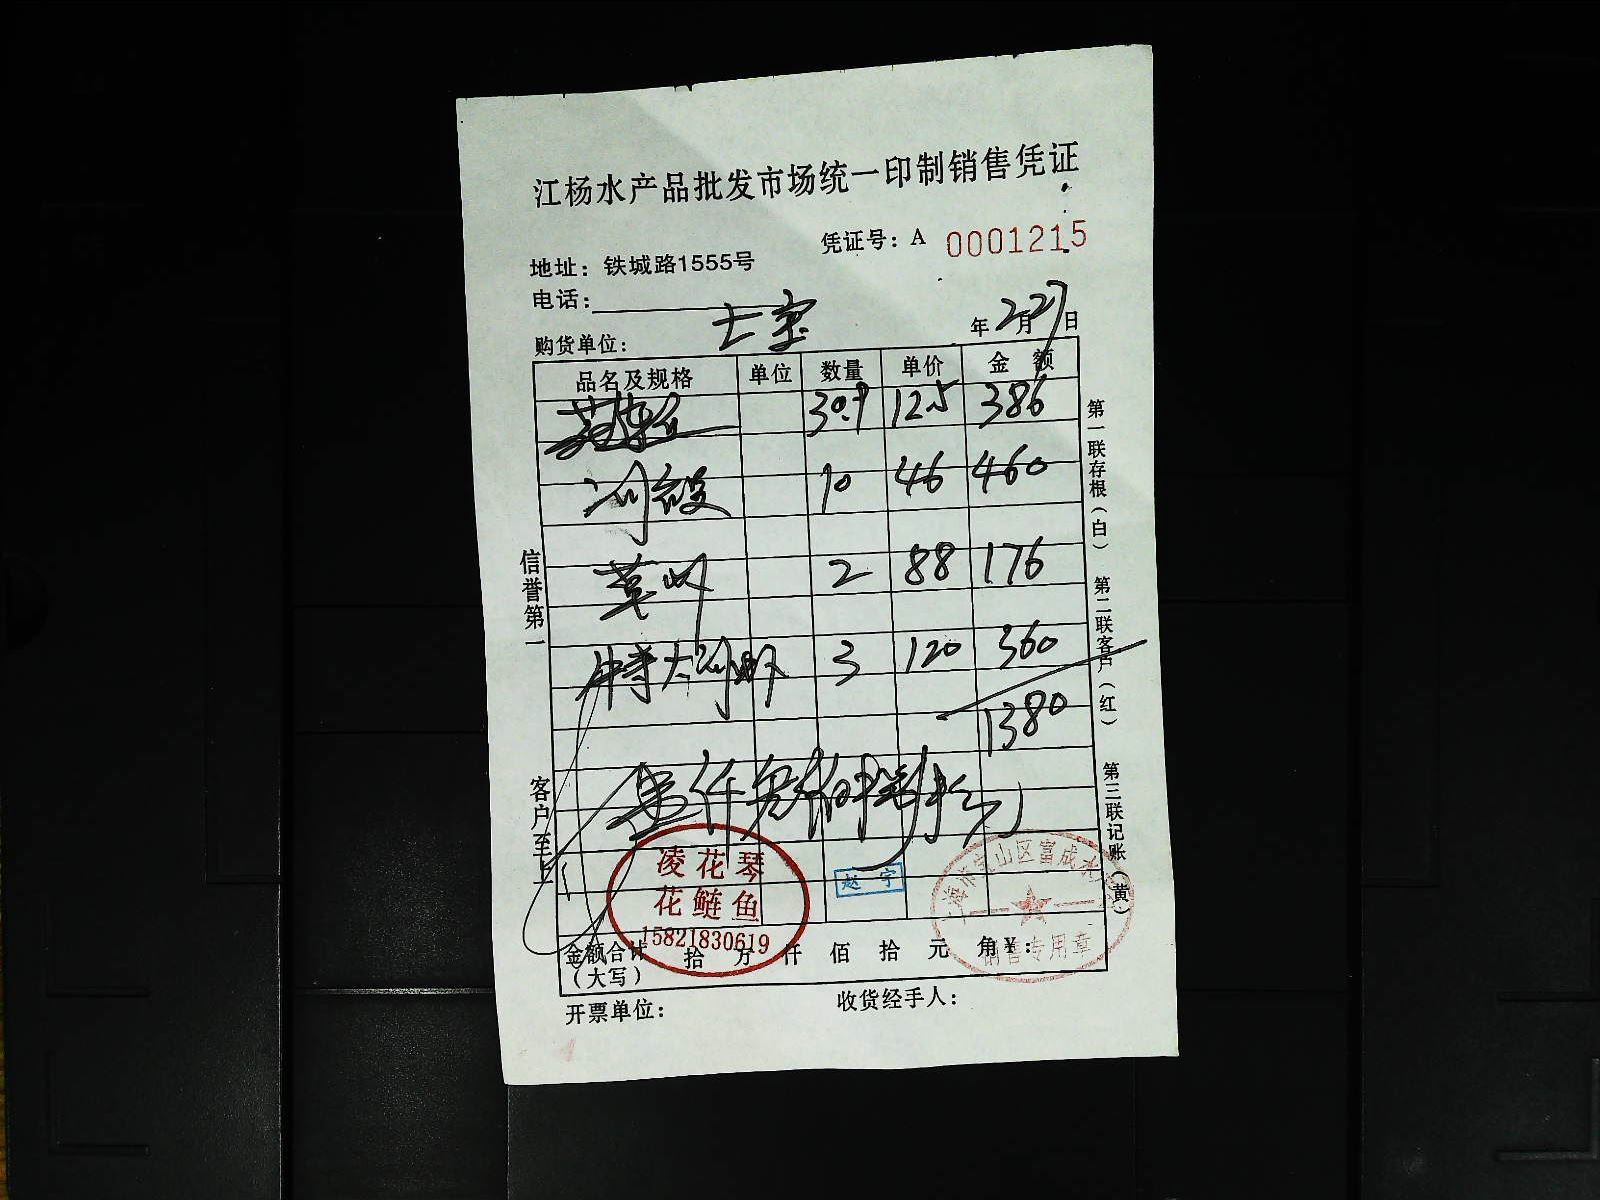 江杨水产品批发市场统一印制销售凭证
凭证号：A 0001215
地址：铁城路1555号
电话：
年2月27日
购货单位：七宝
品名及规格 单位 数量 单价 金额
30.9 12.5 386
河鳗 10 46 460
草虾 2 88 176
特大河虾 3 120 360
1380
壹仟叁佰捌拾元
凌花琴
花鲢鱼
15821830619
赵宇
上海市宝山区富成
销售专用章
金额合计（大写） 拾 万 仟 佰 拾 元 角 ¥：
开票单位： 收货经手人：
信誉第一 客户至上
第一联存根（白） 第二联客户（红） 第三联记账（黄）